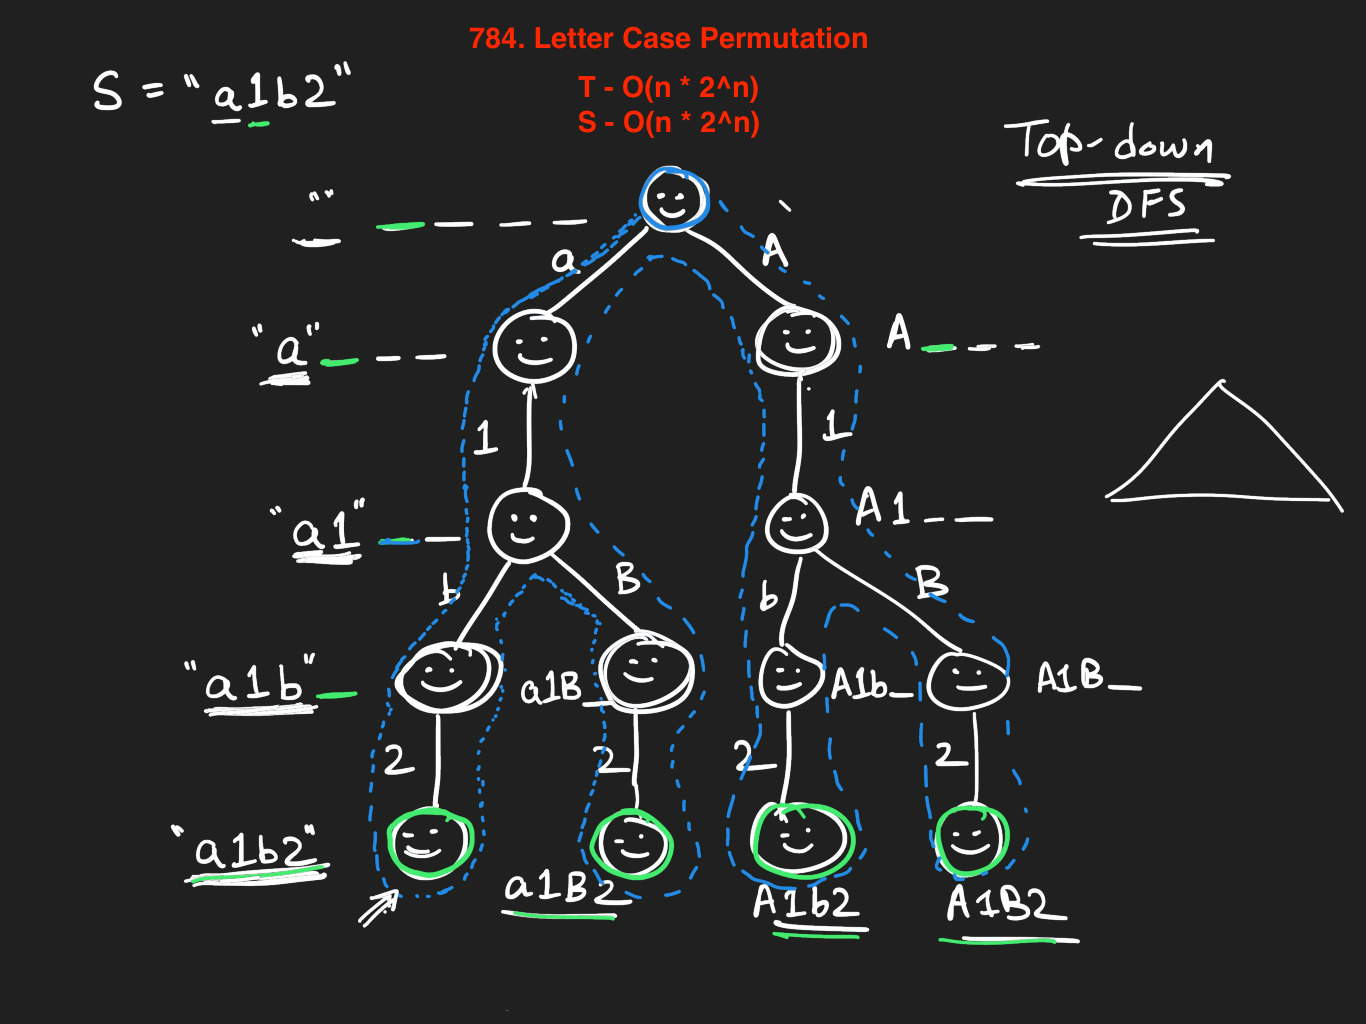 784. Letter Case Permutation
S = "a1b2"
T - O(n * 2^n)
S - O(n * 2^n)
Top-down
DFS
"" _ _ _ _
a
A
"a" _ _ _
A _ _ _
1
1
"a1" _ _
A1 _ _
b
B
b
B
"a1b" _
a1B _
A1b _
A1B _
2
2
2
2
"a1b2"
a1B2
A1b2
A1B2